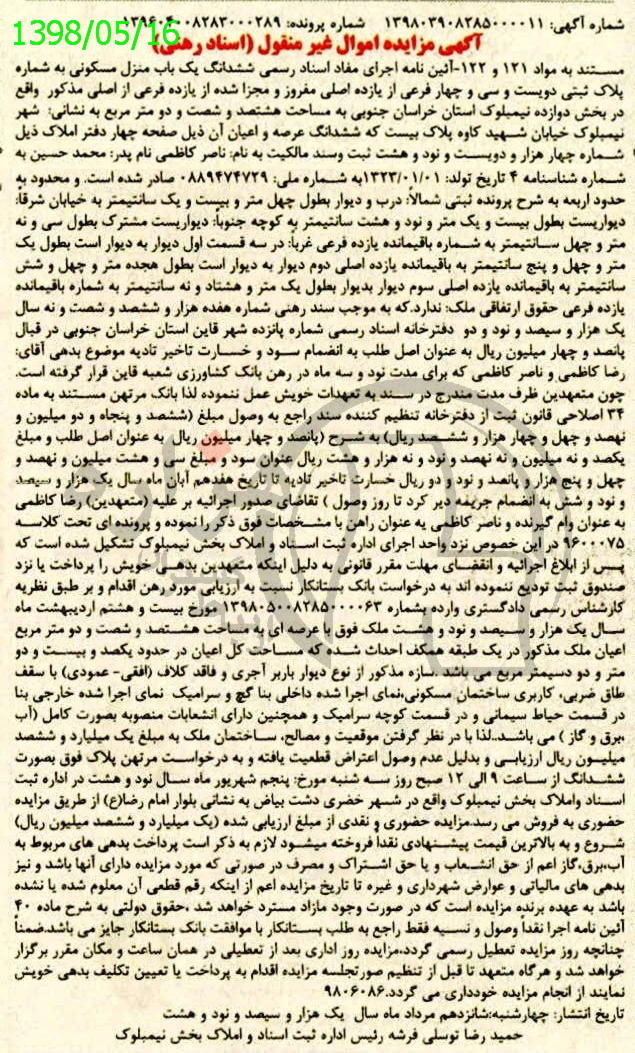 شماره آگهی: ۱۳۹۸۰۳۹۰۸۲۸۵۰۰۰۰۱۱ شماره پرونده: ۱۳۹۶۰۴۰۰۸۲۸۳۰۰۰۲۸۹
1398/05/16
آگهی مزایده اموال غیر منقول (اسناد رهنی)
مستند به مواد ۱۲۱ و ۱۲۲-آئین نامه اجرای مفاد اسناد رسمی ششدانگ یک باب منزل مسکونی به شماره
پلاک ثبتی دویست و سی و چهار فرعی از یازده اصلی مفروز و مجزا شده از یازده فرعی از اصلی مذکور واقع
در بخش دوازده نیمبلوک استان خراسان جنوبی به مساحت هشتصد و شصت و دو متر مربع به نشانی: شهر
نیمبلوک خیابان شهید کاوه پلاک بیست که ششدانگ عرصه و اعیان آن ذیل صفحه چهار دفتر املاک ذیل
شماره چهار هزار و دویست و نود و هشت ثبت وسند مالکیت به نام: ناصر کاظمی نام پدر: محمد حسین به
شماره شناسنامه ۴ تاریخ تولد: ۱۳۲۳/۰۱/۰۱به شماره ملی: ۰۸۸۹۴۷۴۷۲۹ صادر شده است. و محدود به
حدود اربعه به شرح پرونده ثبتی شمالاً: درب و دیوار بطول چهل متر و بیست و یک سانتیمتر به خیابان شرقاً:
دیواریست بطول بیست و یک متر و نود و هشت سانتیمتر به کوچه جنوباً: دیواریست مشترک بطول سی و نه
متر و چهل سانتیمتر به شماره باقیمانده یازده فرعی غرباً: در سه قسمت اول دیوار به دیوار است بطول یک
متر و چهل و پنج سانتیمتر به باقیمانده یازده اصلی دوم دیوار به دیوار است بطول هجده متر و چهل و شش
سانتیمتر به باقیمانده یازده اصلی سوم دیوار بدیوار بطول یک متر و هشتاد و نه سانتیمتر به شماره باقیمانده
یازده فرعی حقوق ارتفاقی ملک: ندارد.که به موجب سند رهنی شماره هفده هزار و ششصد و شصت و نه سال
یک هزار و سیصد و نود و دو دفترخانه اسناد رسمی شماره پانزده شهر قاین استان خراسان جنوبی در قبال
پانصد و چهار میلیون ریال به عنوان اصل طلب به انضمام سود و خسارت تاخیر تادیه موضوع بدهی آقای:
رضا کاظمی و ناصر کاظمی که برای مدت نود و سه ماه در رهن بانک کشاورزی شعبه قاین قرار گرفته است.
چون متعهدین ظرف مدت مندرج در سند به تعهدات خویش عمل ننموده لذا بانک مرتهن مستند به ماده
۳۴ اصلاحی قانون ثبت از دفترخانه تنظیم کننده سند راجع به وصول مبلغ (ششصد و پنجاه و دو میلیون و
نهصد و چهل و چهار هزار و ششصد ریال) به شرح (پانصد و چهار میلیون ریال به عنوان اصل طلب و مبلغ
یکصد و نه میلیون و نه نهصد و نود و نه هزار و هشت ریال عنوان سود و مبلغ سی و هشت میلیون و نهصد و
چهل و پنج هزار و پانصد و نود و دو ریال خسارت تاخیر تادیه تا تاریخ هفدهم آبان ماه سال یک هزار و سیصد
و نود و شش به انضمام جریمه دیر کرد تا روز وصول ) تقاضای صدور اجرائیه بر علیه (متعهدین) رضا کاظمی
به عنوان وام گیرنده و ناصر کاظمی به عنوان راهن با مشخصات فوق ذکر را نموده و پرونده ای تحت کلاسه
۹۶۰۰۰۷۵ در این خصوص نزد واحد اجرای اداره ثبت اسناد و املاک بخش نیمبلوک تشکیل شده است که
پس از ابلاغ اجرائیه و انقضای مهلت مقرر قانونی به دلیل اینکه متعهدین بدهی خویش را پرداخت یا نزد
صندوق ثبت تودیع ننموده اند به درخواست بانک بستانکار نسبت به ارزیابی مورد رهن اقدام و بر طبق نظریه
کارشناس رسمی دادگستری وارده بشماره ۱۳۹۸۰۵۰۰۸۲۸۵۰۰۰۰۶۳ مورخ بیست و هشتم اردیبهشت ماه
سال یک هزار و سیصد و نود و هشت ملک فوق با عرصه ای به مساحت هشتصد و شصت و دو متر مربع
اعیان ملک مذکور در یک طبقه همکف احداث شده که مساحت کل اعیان در حدود یکصد و بیست و دو
متر و دو دسیمتر مربع می باشد .سازه مذکور از نوع دیوار باربر آجری و فاقد کلاف (افقی- عمودی) با سقف
طاق ضربی، کاربری ساختمان مسکونی،نمای اجرا شده داخلی بنا گچ و سرامیک نمای اجرا شده خارجی بنا
در قسمت حیاط سیمانی و در قسمت کوچه سرامیک و همچنین دارای انشعابات منصوبه بصورت کامل (آب
،برق و گاز ) می باشد..لذا با در نظر گرفتن موقعیت و مصالح، ساختمان ملک به مبلغ یک میلیارد و ششصد
میلیون ریال ارزیابی و بدلیل عدم وصول اعتراض قطعیت یافته و به درخواست مرتهن پلاک فوق بصورت
ششدانگ از ساعت ۹ الی ۱۲ صبح روز سه شنبه مورخ: پنجم شهریور ماه سال نود و هشت در اداره ثبت
اسناد واملاک بخش نیمبلوک واقع در شهر خضری دشت بیاض به نشانی بلوار امام رضا(ع) از طریق مزایده
حضوری به فروش می رسد.مزایده حضوری و نقدی از مبلغ ارزیابی شده (یک میلیارد و ششصد میلیون ریال)
شروع و به بالاترین قیمت پیشنهادی نقداً فروخته میشود لازم به ذکر است پرداخت بدهی های مربوط به
آب،برق،گاز اعم از حق انشعاب و یا حق اشتراک و مصرف در صورتی که مورد مزایده دارای آنها باشد و نیز
بدهی های مالیاتی و عوارض شهرداری و غیره تا تاریخ مزایده اعم از اینکه رقم قطعی آن معلوم شده یا نشده
باشد به عهده برنده مزایده است که در صورت وجود مازاد مسترد خواهد شد .حقوق دولتی به شرح ماده ۴۰
آئین نامه اجرا نقداً وصول و نسیه فقط راجع به طلب بستانکار با موافقت بانک بستانکار جایز می باشد.ضمناً
چنانچه روز مزایده تعطیل رسمی گردد،مزایده روز اداری بعد از تعطیلی در همان ساعت و مکان مقرر برگزار
خواهد شد و هرگاه متعهد تا قبل از تنظیم صورتجلسه مزایده اقدام به پرداخت یا تعیین تکلیف بدهی خویش
نمایند از انجام مزایده خودداری می گردد.۹۸۰۶۰۸۶
تاریخ انتشار: چهارشنبه:شانزدهم مرداد ماه سال یک هزار و سیصد و نود و هشت
حمید رضا توسلی فرشه رئیس اداره ثبت اسناد و املاک بخش نیمبلوک